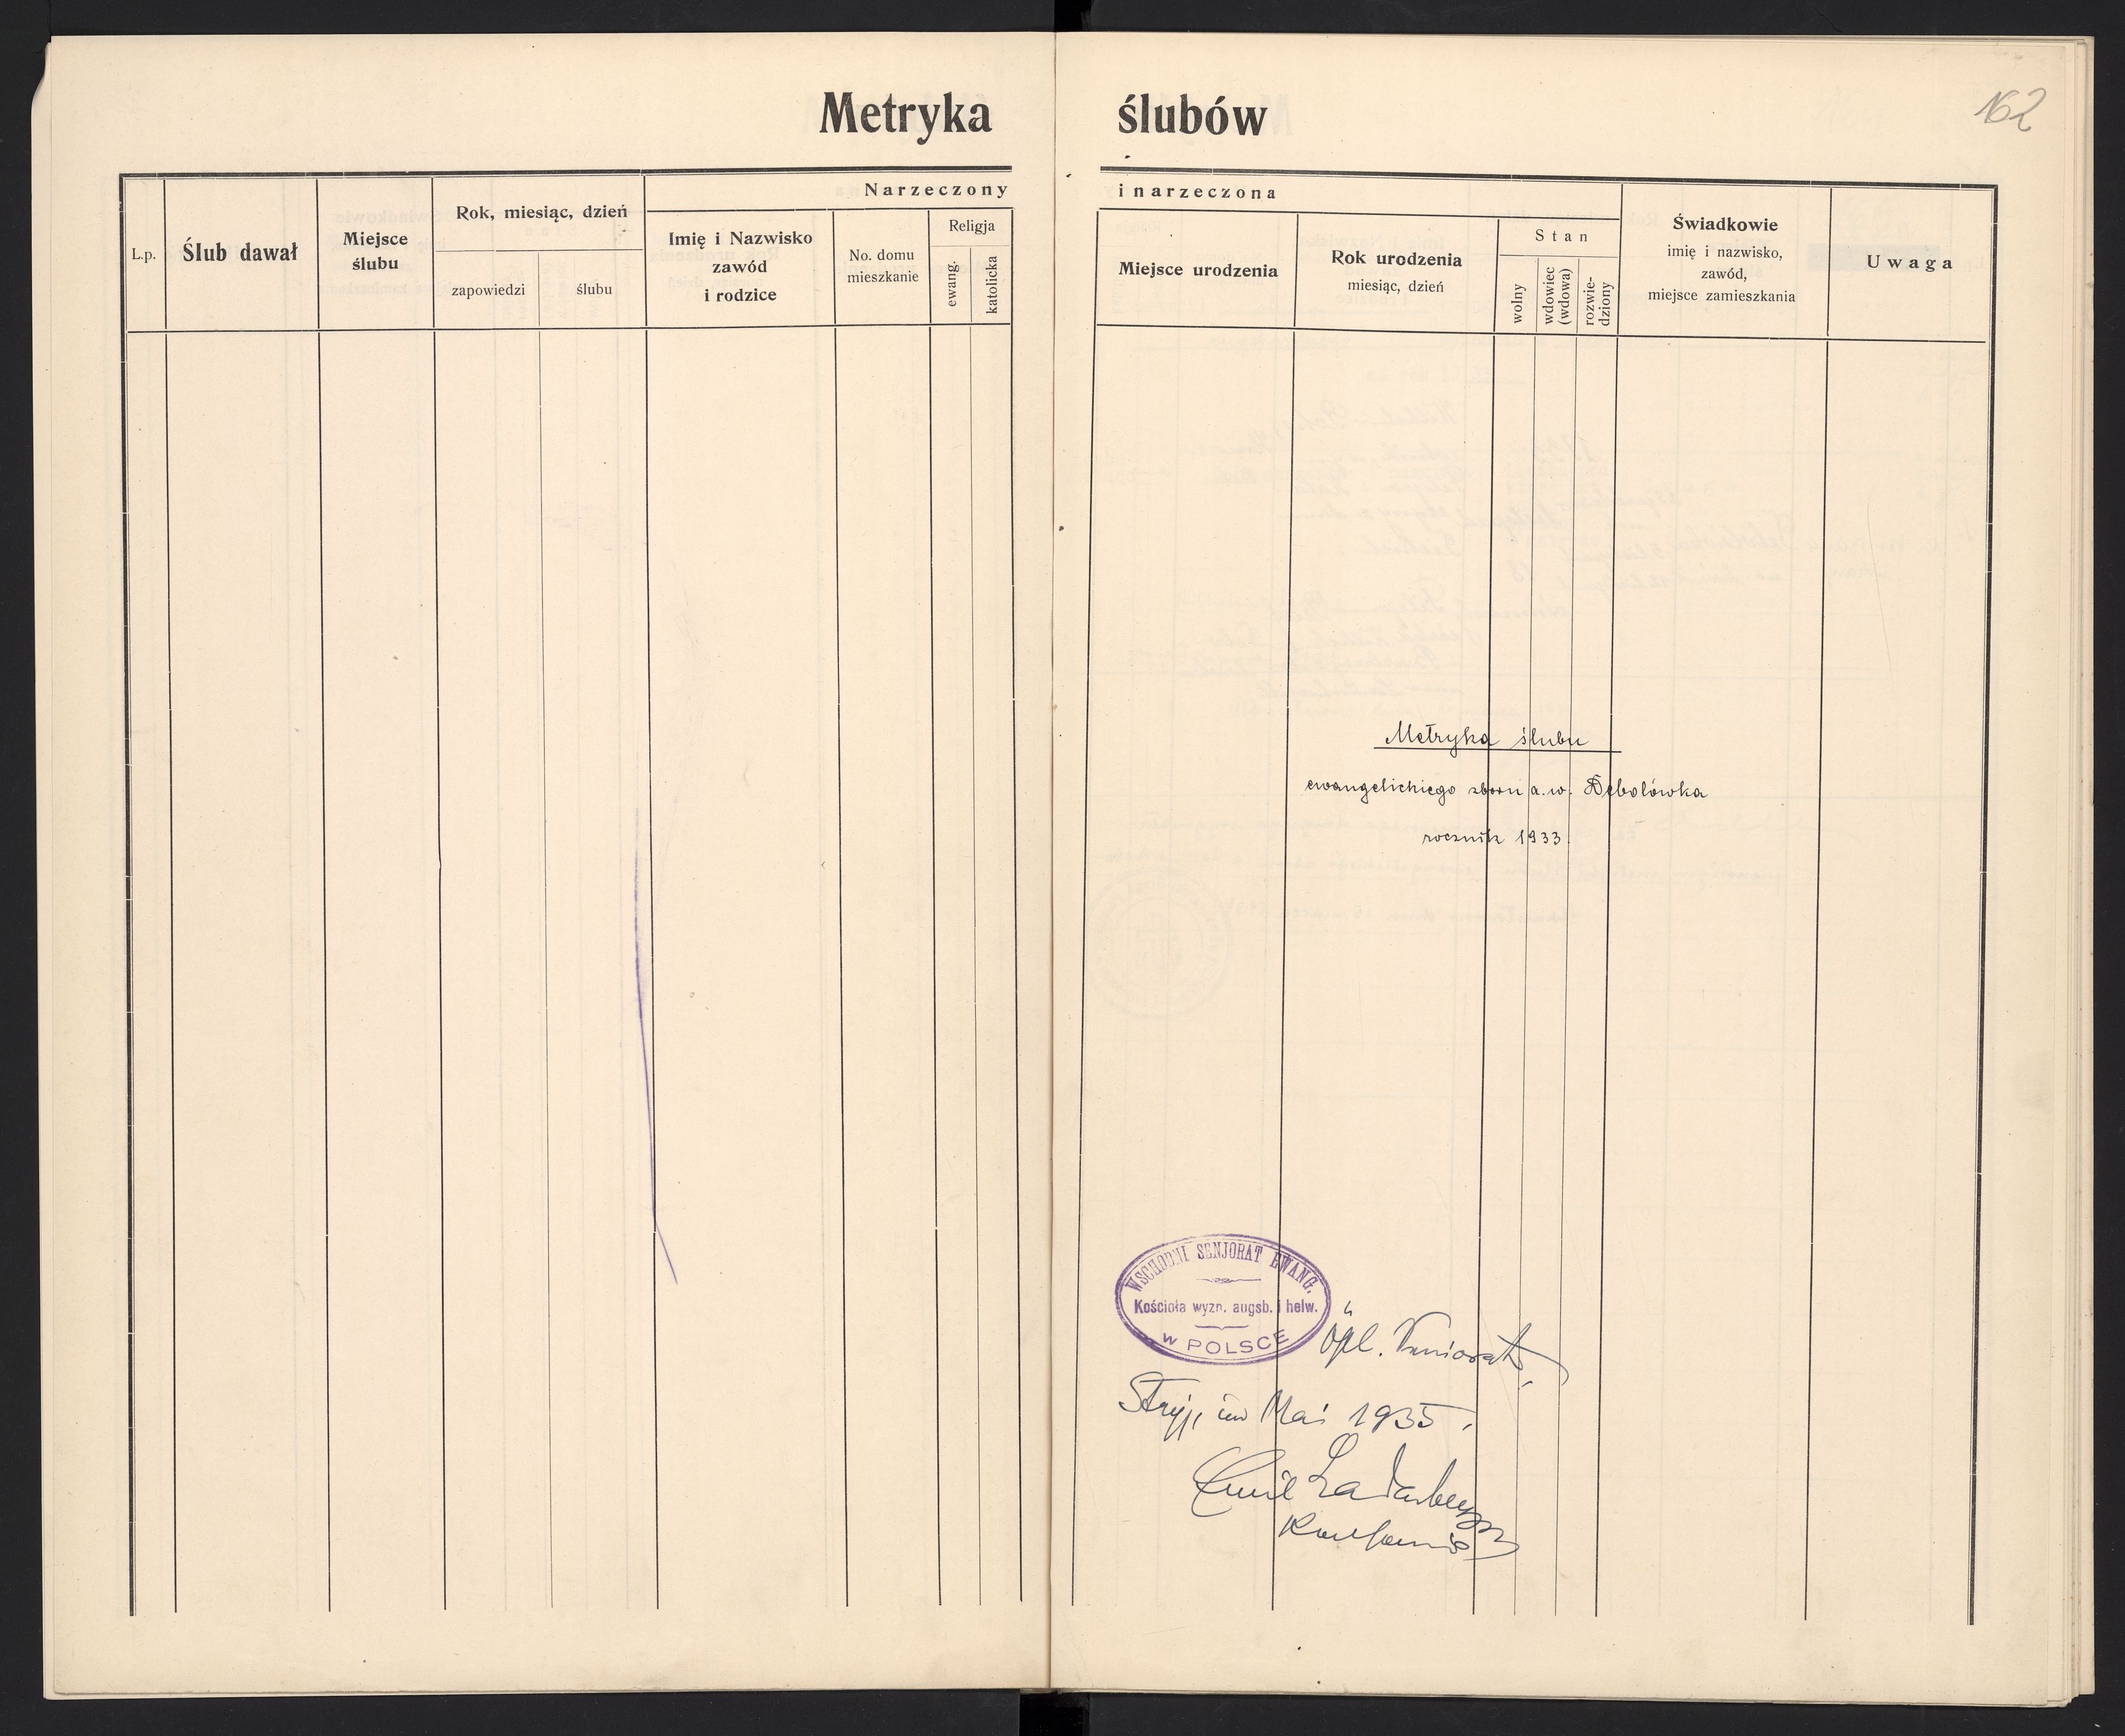 Metryka ślubów
162
Narzeczony i narzeczona
L.p.
Ślub dawał
Miejsce
ślubu
Rok, miesiąc, dzień
zapowiedzi
ślubu
Imię i Nazwisko
zawód
i rodzice
No. domu
mieszkanie
Religja
ewang.
katolicka
Miejsce urodzenia
Rok urodzenia
miesiąc, dzień
Stan
wolny
wdowiec
(wdowa)
rozwie-
dziony
Świadkowie
imię i nazwisko,
zawód,
miejsce zamieszkania
Uwaga
Metryka ślubu
ewangelickiego zboru a.w. Debolówka
rocznik 1933.
WSCHODNI SENJORAT EWANG.
Kościoła wyzn. augsb. i helw.
w POLSCE
Stryj, im Mai 1935.
Emil Ladenberger